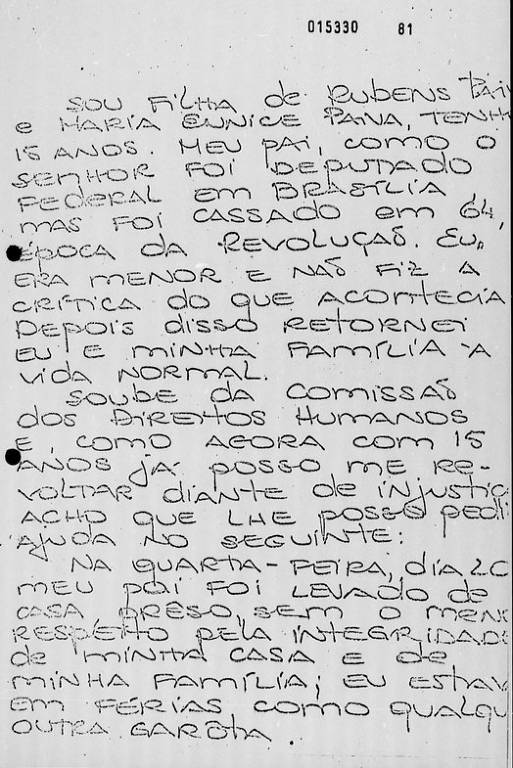 015330 81
SOU FILHA de RUBENS PAIV
e MARIA EUNICE PAIVA, TENH
15 ANOS. MEU PAI, COMO O
SENHOR FOI DEPUTADO
FEDERAL EM BRASÍLIA,
MAS FOI CASSADO em 64,
ÉPOCA DA REVOLUÇÃO. EU,
ERA MENOR E NÃO FIZ A
CRÍTICA DO QUE ACONTECIA
DEPOIS DISSO RETORNEI
EU E MINHA FAMÍLIA A
VIDA NORMAL.
SOUBE DA COMISSÃO
DOS DIREITOS HUMANOS
E, COMO AGORA COM 15
ANOS JÁ POSSO ME RE-
VOLTAR DIANTE DE INJUSTIÇ
ACHO QUE LHE POSSO PEDI
AJUDA NO SEGUINTE:
NA QUARTA-FEIRA, DIA 20
MEU PAI FOI LEVADO de
CASA PRESO, SEM O MENO
RESPEITO PELA INTEGRIDADE
de MINHA CASA E de
MINHA FAMÍLIA; EU ESTAV
EM FÉRIAS COMO QUALQU
OUTRA GARÔTA.